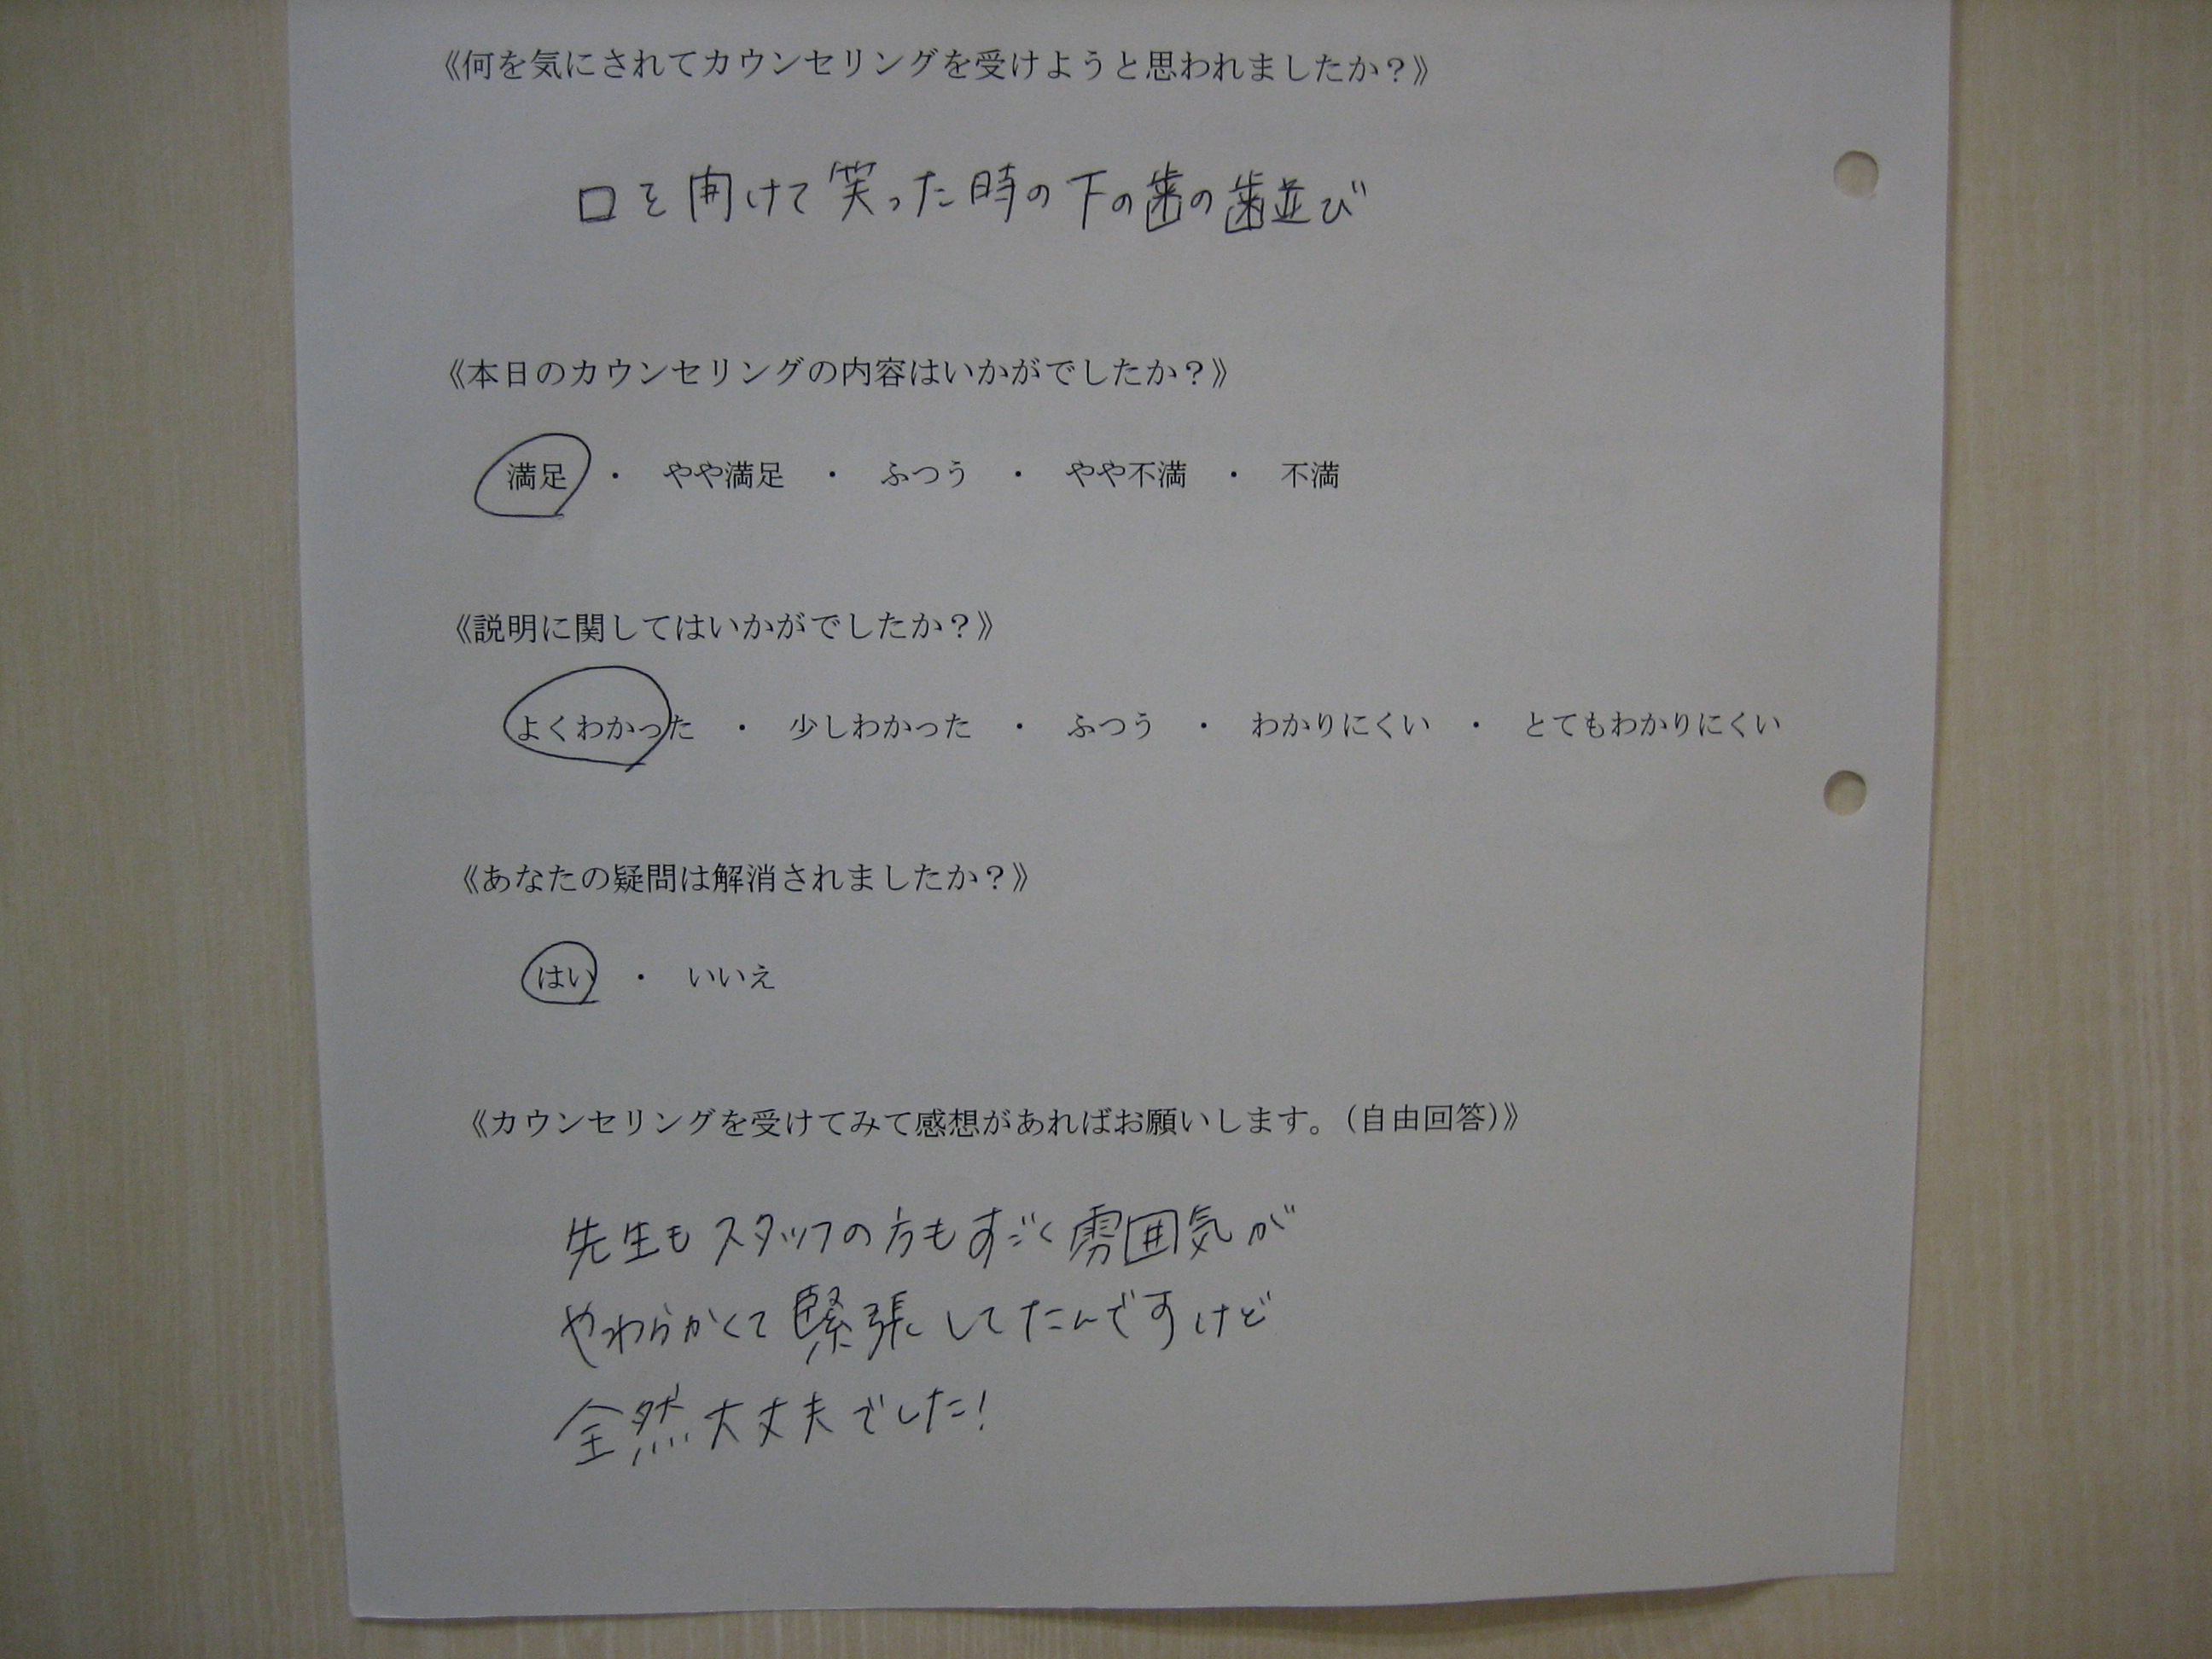 《何を気にされてカウンセリングを受けようと思われましたか？》
口を開けて笑った時の下の歯の歯並び
《本日のカウンセリングの内容はいかがでしたか？》
満足　・　やや満足　・　ふつう　・　やや不満　・　不満
《説明に関してはいかがでしたか？》
よくわかった　・　少しわかった　・　ふつう　・　わかりにくい　・　とてもわかりにくい
《あなたの疑問は解消されましたか？》
はい　・　いいえ
《カウンセリングを受けてみて感想があればお願いします。（自由回答）》
先生もスタッフの方もすごく雰囲気が
やわらかくて緊張してたんですけど
全然大丈夫でした！